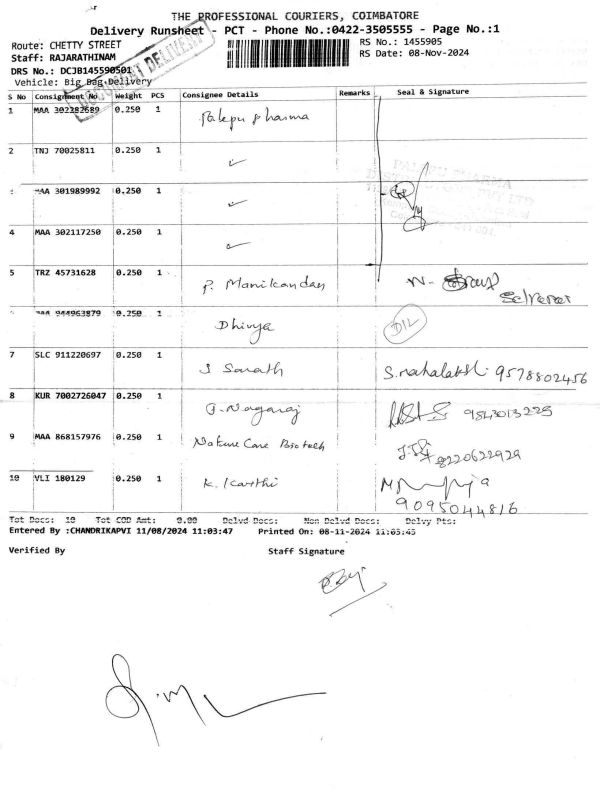 THE PROFESSIONAL COURIERS, COIMBATORE
Delivery Runsheet - PCT - Phone No.:0422-3505555 - Page No.:1
Route: CHETTY STREET
RS No.: 1455905
Staff: RAJARATHINAM
RS Date: 08-Nov-2024
DRS No.: DCJB145590501
DOCUMENT DELIVERY
Vehicle: Big Bag Delivery
S No Consignment No Weight PCS Consignee Details Remarks Seal & Signature
1 MAA 302282689 0.250 1 Palepu pharma
2 TNJ 70025811 0.250 1
MAA 301989992 0.250 1
4 MAA 302117250 0.250 1
5 TRZ 45731628 0.250 1 P. Manikandan
MAA 944963879 0.250 1 Dhivya
7 SLC 911220697 0.250 1 S Sarath S.mahalakshi 9578802456
8 KUR 7002726047 0.250 1 G. Nagaraj 9543013225
9 MAA 868157976 0.250 1 Nature Care Bio tech 8220622929
10 VLI 180129 0.250 1 K. Karthi
9095044816
Tot Docs: 10 Tot COD Amt: 0.00 Delvd Docs: Non Delvd Docs: Delvy Pts:
Entered By :CHANDRIKAPVI 11/08/2024 11:03:47 Printed On: 08-11-2024 11:05:45
Verified By Staff Signature